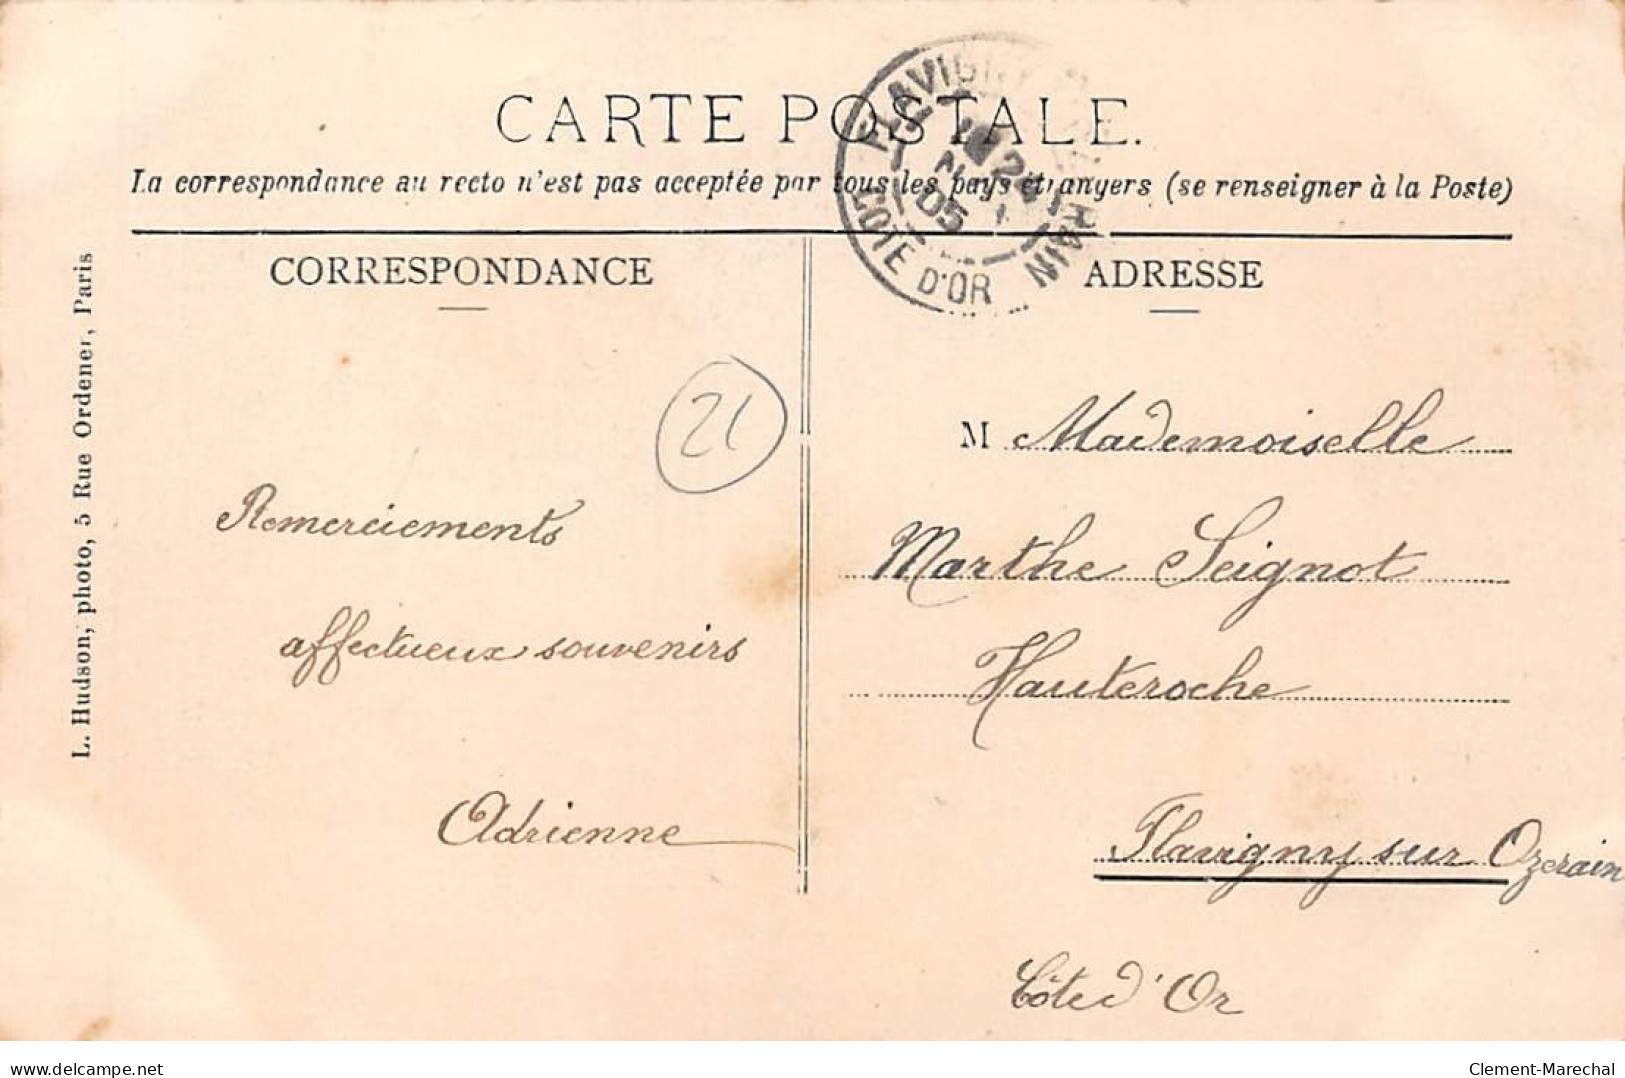 CARTE POSTALE.
La correspondance au recto n'est pas acceptée par tous les pays étrangers (se renseigner à la Poste)
CORRESPONDANCE
21
Remerciements
affectueux souvenirs
Adrienne
L. Hudson, photo, 5 Rue Ordener, Paris
24
05
CÔTE D'OR
ADRESSE
M Mademoiselle
Marthe Seignot
Hauteroche
Flavigny sur Ozerain
Côte d'Or
Clement-Marechal